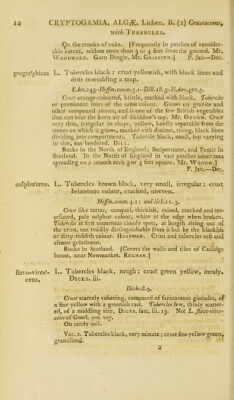 12 CRYPTOGAMIA. ALGÆ. Lichen. B. (2) Crustaceous,
with TUBERCLES.
On the trunks of oaks. [Frequently in patches of consider-
able extent, seldom more than 3 or 4 feet from the ground. Mr.
WOODWARD. Garn Dingle, Mr. GRIFFITH.] P. Jan.—Dec.
geograph'icus L. Tubercles black : crust yellowish, with black lines and
dots resembling a map.
Crust orange-coloured, brittle, marked with black, Tubercles
or prominent lines of the same colour. Grows on granite and
other compound stones, and is one of the few British vegetables
that can bear the keen air of Skiddow's top. Mr. GOUGH. Crust
very thin, irregular in shape, yellow, hardly separable from the
stones on which it grows, marked with distinct, rising, black lines
dividing into compartments. Tubercles black, small, but varying
in size, not bordered. DILL.
Rocks in the North of England; Stelperstone, and Tenzie in
Scotland. In the North of England in vast patches sometimes
spreading on a smooth rock 3 or 4 feet square. Mr. WOODW.]
P. Jan.—Dec.
sulphu'reus. L. Tubercles brown black, very small, irregular : crust
brimstone colour, cracked, uneven.
Crust like tartar, unequal, thickish, raised, cracked and tes-
sellated, pale sulphur colour, white at the edge when broken.
Tubercles at first numerous cloudy spots, at length rising out of
the crust, not readily distinguishable from it but by the blackish
or dirty reddish colour. HOFFMAN. Crust and tubercles soft and
almost gelatinous.
Rocks in Scotland. [Covers the walls and tiles of Catlidge
house, near Newmarket. RELHAN.]
flavo-vires'-
cens. L. Tubercles black, rough : crust green yellow, mealy.
DICKS. iii.
Dicks.8.9.
Crust scarcely cohering, composed of farinaceous globules, of
a fine yellow with a greenish cast. Tubercles few, thinly scatter-
ed, of a middling size, DICKS. fasc. iii. 13. Not L. flavo-vires-
cens of Gmel. syst. veg.
On sandy soil.
Var. 2. Tubercles black, very minute ; crust fine yellow green,
granulated.
2